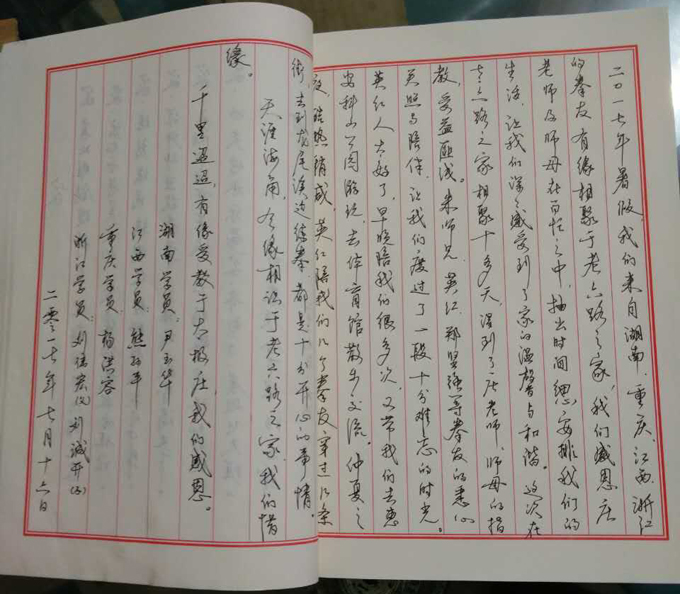 二〇一七年暑假我们来自湖南、重庆、江西、浙江
的拳友有缘相聚于老六路之家,我们感恩庄
老师及师母在百忙之中,抽出时间细心安排我们的
生活,让我们深深感受到了家的温馨与和谐。这次在
老六路之家相聚十多天,得到了庄老师、师母的指
教,受益匪浅。朱师兄、吴红、郑坚强等拳友的悉心
关照与陪伴,让我们度过了一段十分难忘的时光。
吴红人太好了,早晚陪我们很多次,又带我们去惠
安科山公园游玩,去体育馆散步交流。仲夏之
夜,浩热情盛,吴红陪我们几个拳友穿过几条
街去到龙尾溪边练拳,都是十分开心的事情。
天涯海角,有缘相识于老六路之家,我们惜
缘。
千里迢迢,有缘受教于太极庄,我们感恩。
湖南学员 尹玉华
江西学员 熊
重庆学员 杨洪容
浙江学员 刘
二零一七年七月十六日